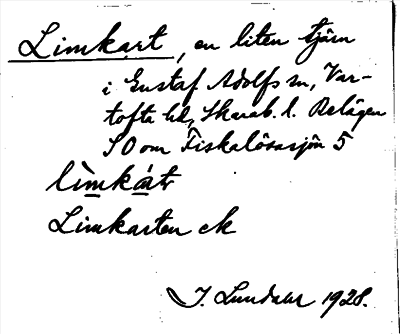 Limkart, en liten tjärn
i Gustaf Adolfs sn, Var-
tofta hd, Skarab. l. Belägen
SO om Fiskalösasjön 5
lìmkát
Limkarten ck
J. Lundahl 1928.